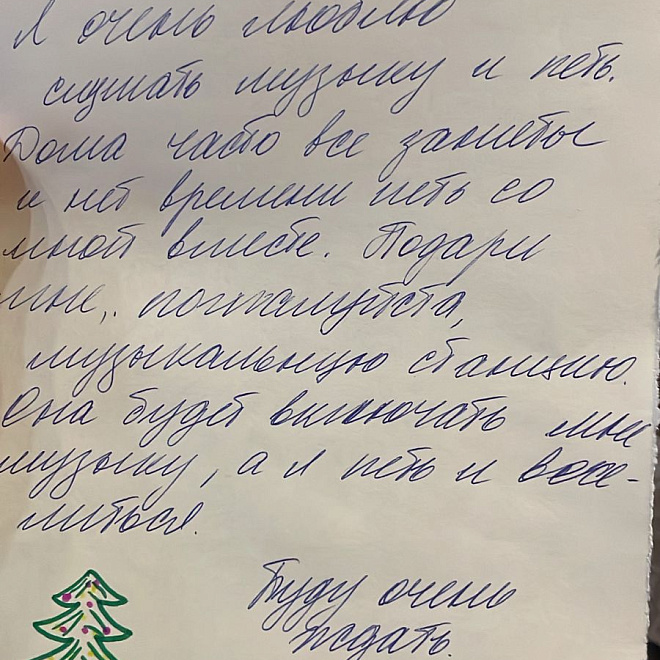 Я очень люблю
слушать музыку и петь.
Дома часто все заняты
и нет времени петь со
мной вместе. Подари
мне, пожалуйста,
музыкальную станцию.
Она будет включать мне
музыку, а я петь и весе-
литься.
Буду очень
ждать.